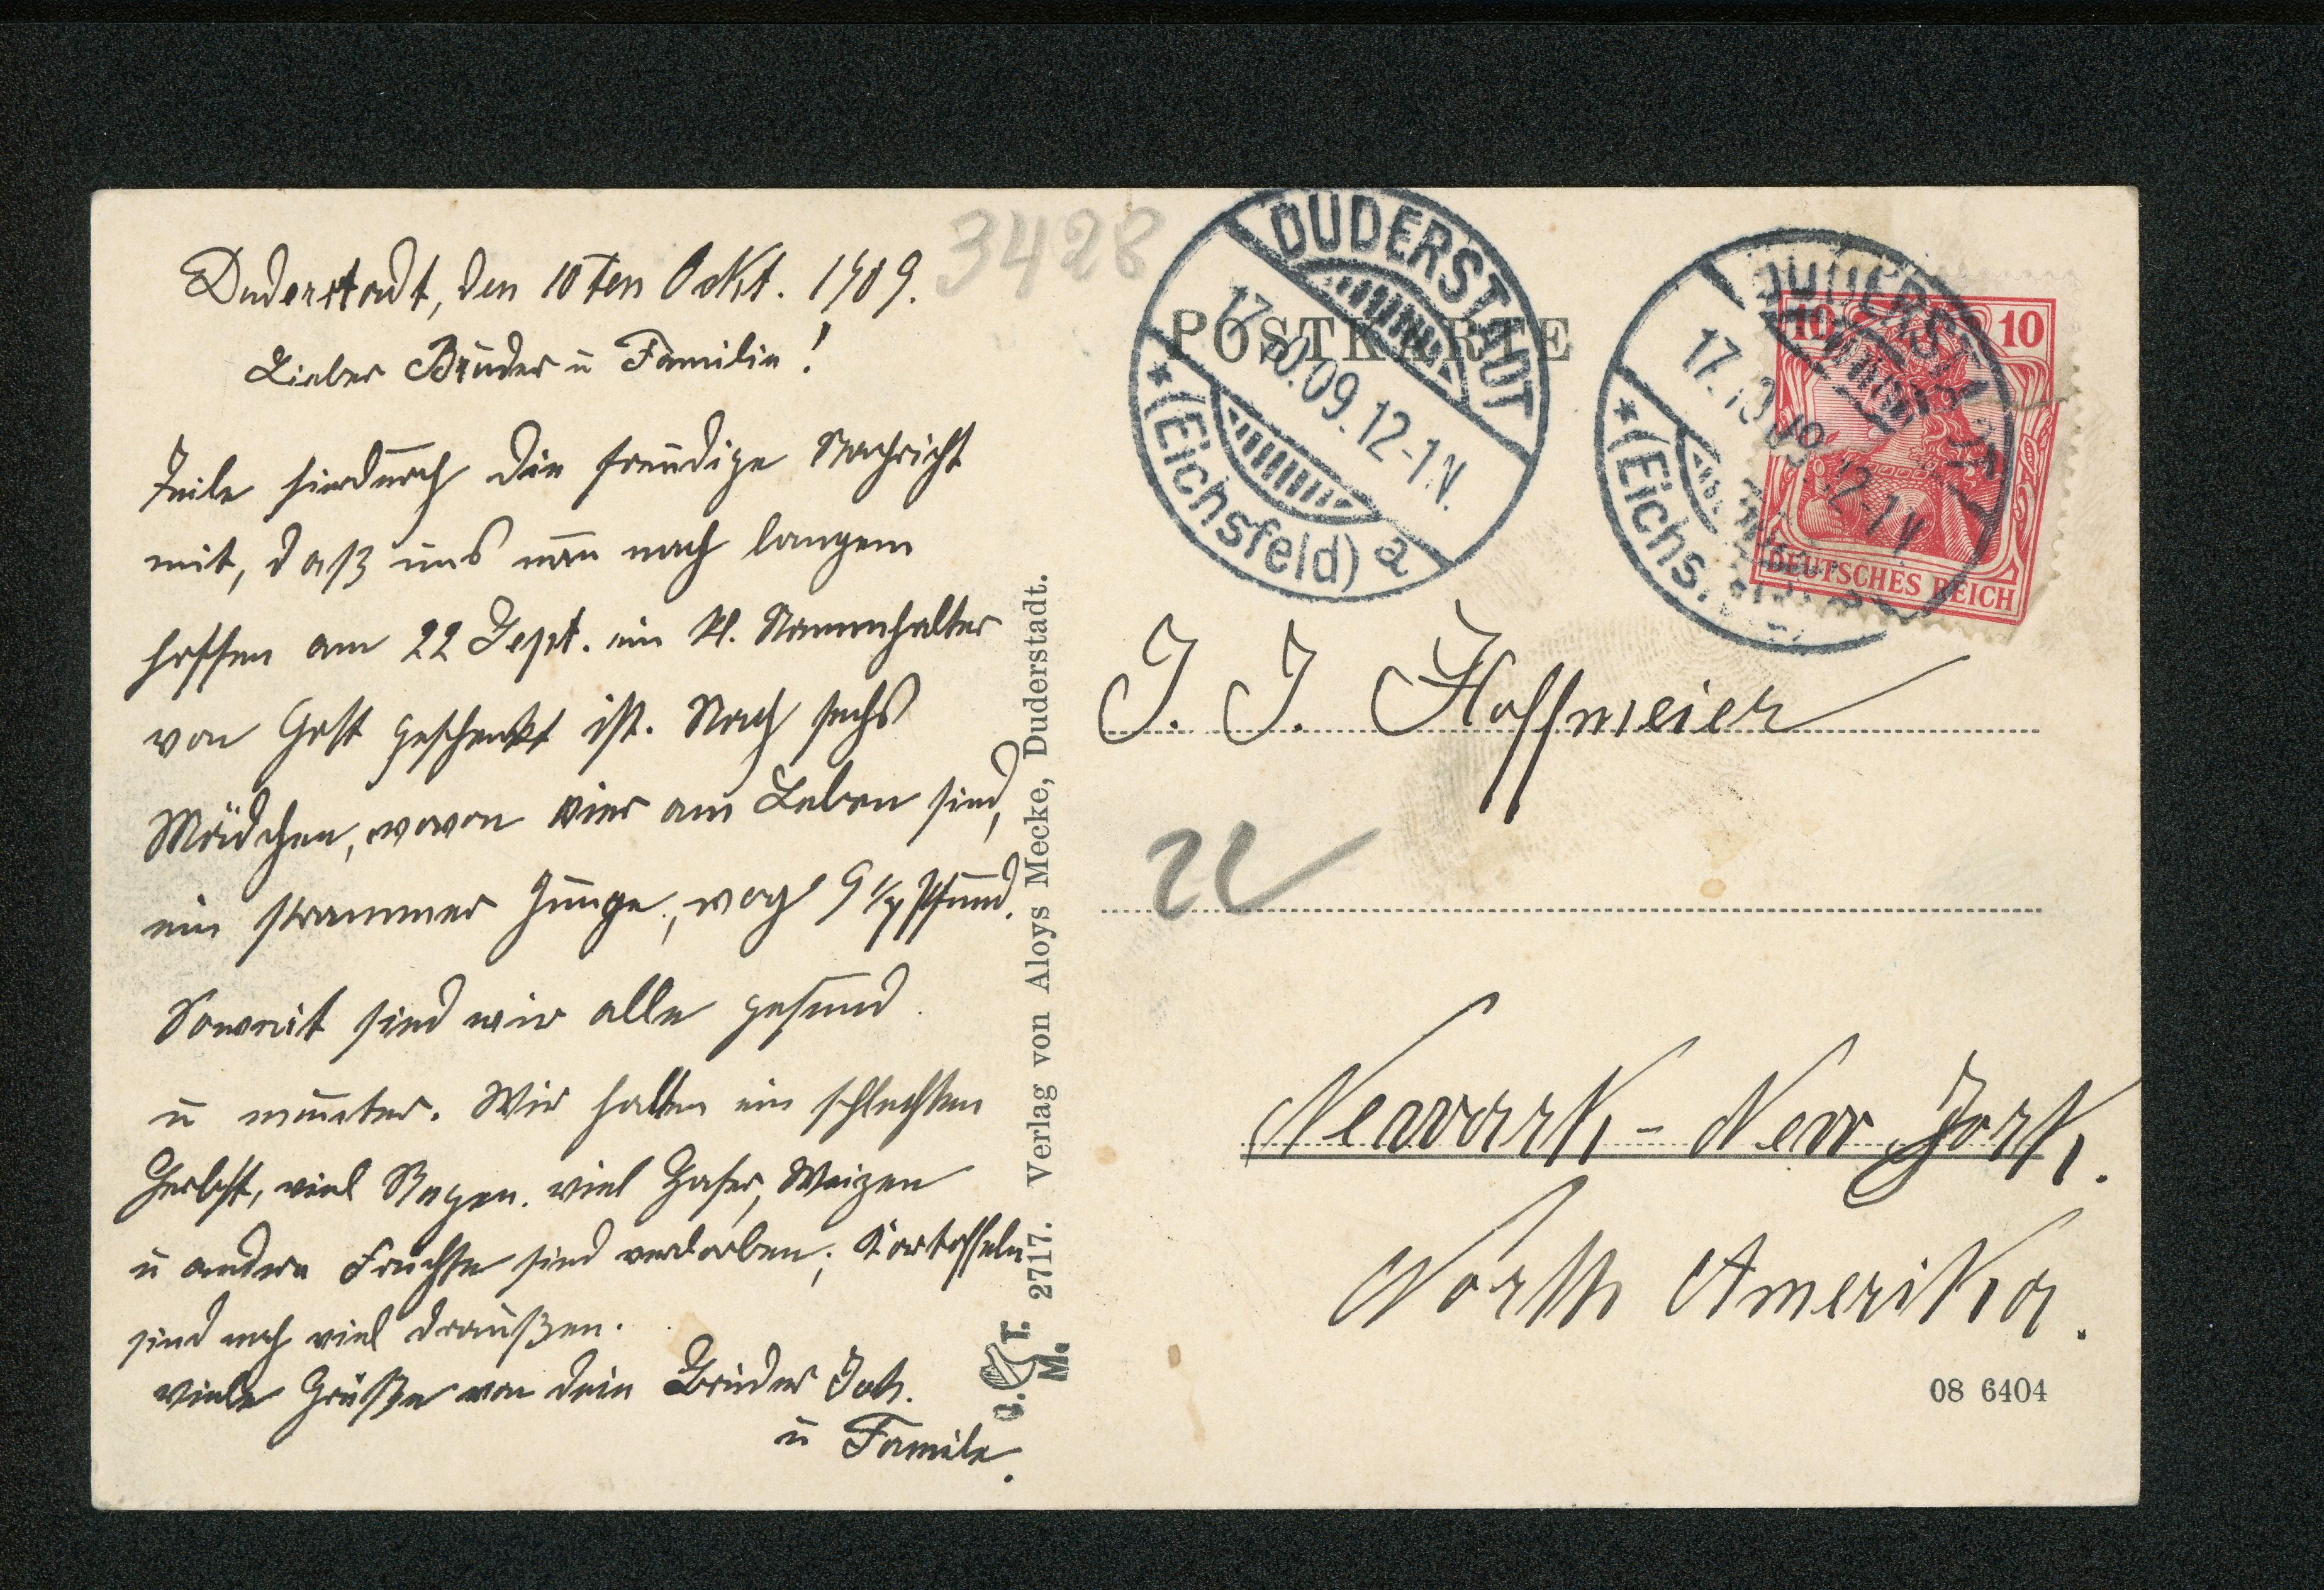 Duderstadt, den 10ten Ockt. 1909.
Lieber Bruder u Familie!
Teile hierdurch die freudige Nachricht
mit, daß uns nun nach langem
hoffen am 22 Sept. ein kl. Stammhalter
von Gott geschenkt ist. Nach sechs
Mädchen, wovon vier am Leben sind,
ein strammer Junge, wog 9 Pfund.
Soweit sind wir alle gesund
u munter. Wir hatten ein schlechten
Herbst, viel Regen. viel Hafer, Weizen
u andere Früchte sind verdorben; Kartoffeln
sind noch viel draußen.
Viele Grüße von dein Bruder Joh.
u Famile.
3428
M. 2717. Verlag von Aloys Mecke, Duderstadt.
POSTKARTE
DUDERSTADT
17.10.09.12-1 N.
*(Eichsfeld) a
DUDERSTADT
17.10.09.12-1 N.
*(Eichs
10 10
DEUTSCHES REICH
J. J. Hoffmeier
22
Newark - New Jork.
North Amerika.
08 6404